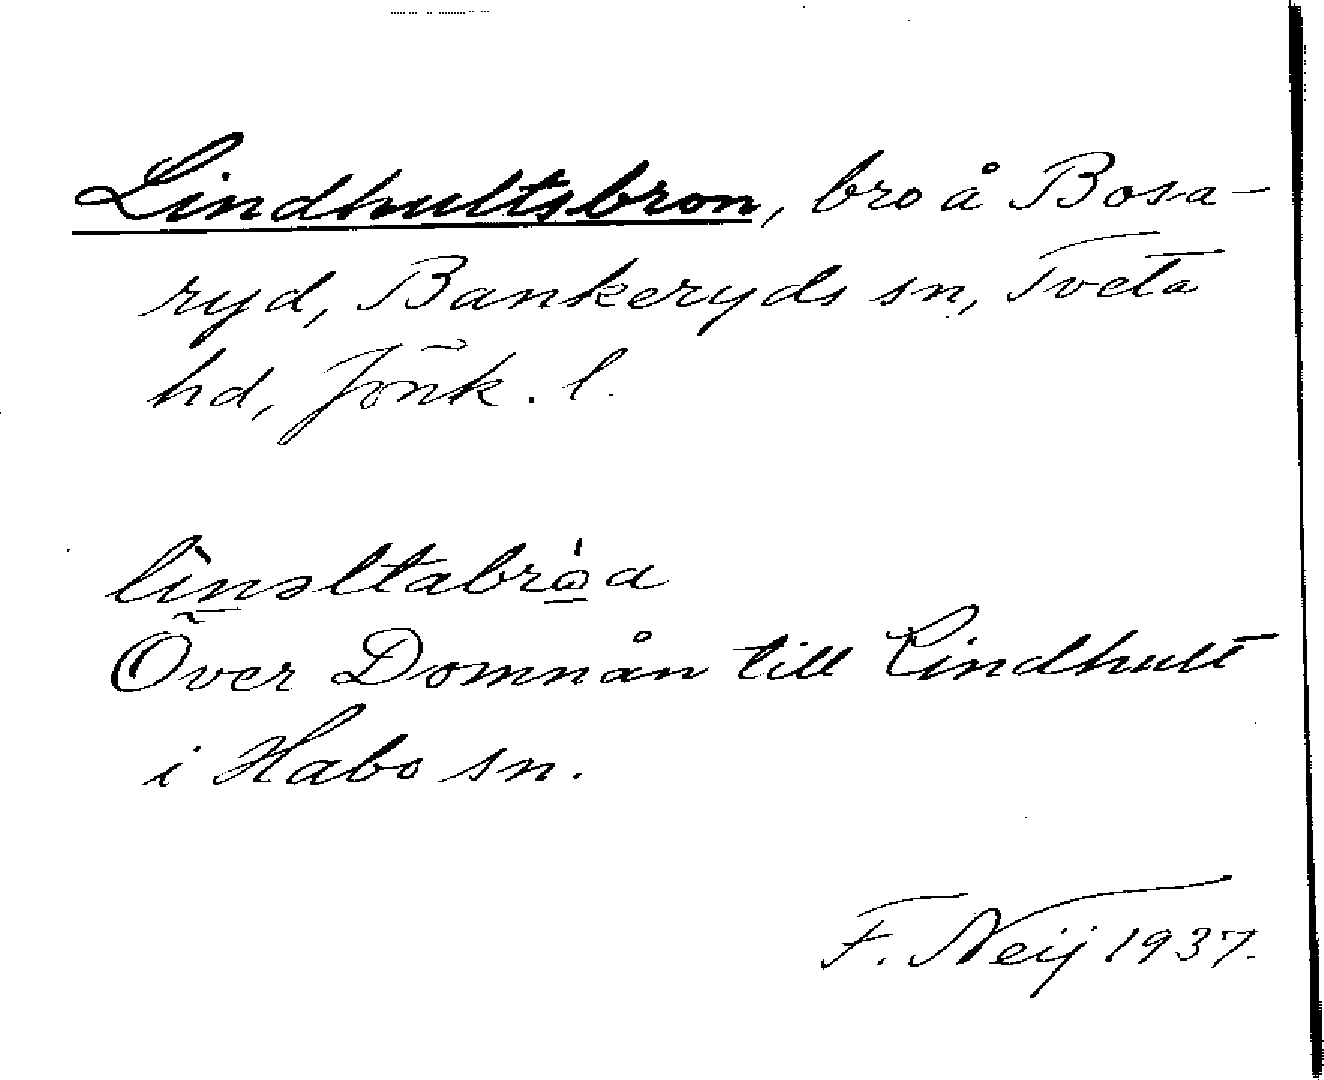 Lindhultsbron, bro å Bosa-
ryd, Bankeryds sn, Tveta
hd, Jönk. l.
Över Domnån till Lindhult
i Habo sn.
F. Neij 1937.